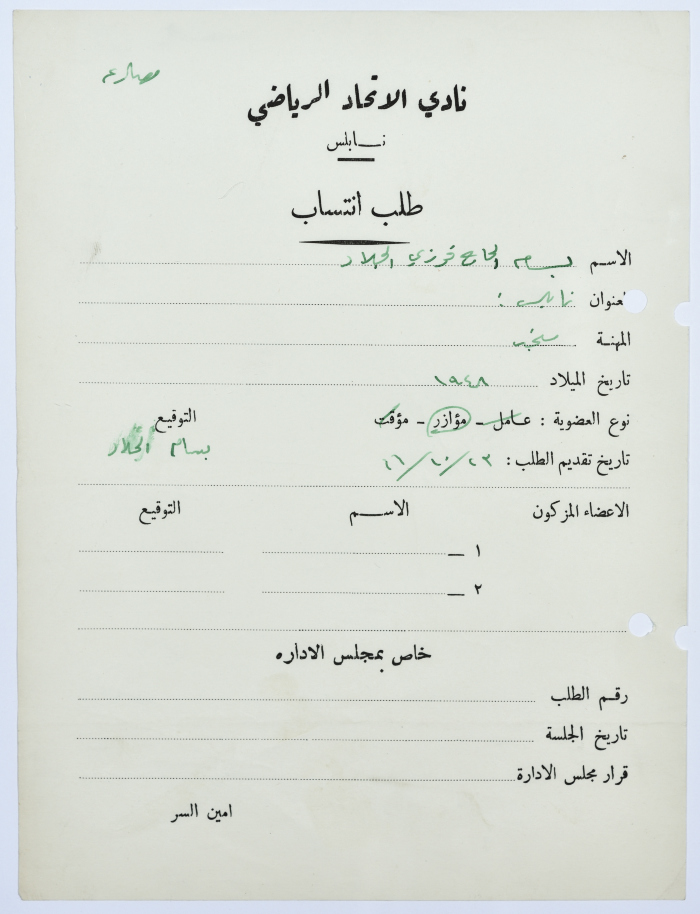 مصارعه
نادي الاتحاد الرياضي
نابلس
طلب انتساب
الاسم بسام الحاج فوزي الجلاد
العنوان نابلس :
المهنة
تاريخ الميلاد ١٩٤٨
نوع العضوية : عامل - مؤازر - مؤقت التوقيع
تاريخ تقديم الطلب : ٢٣ / ١٠ / ٦٦ بسام الجلاد
الاعضاء المزكون الاسم التوقيع
١ —
٢ —
خاص بمجلس الاداره
رقم الطلب
تاريخ الجلسة
قرار مجلس الادارة
امين السر